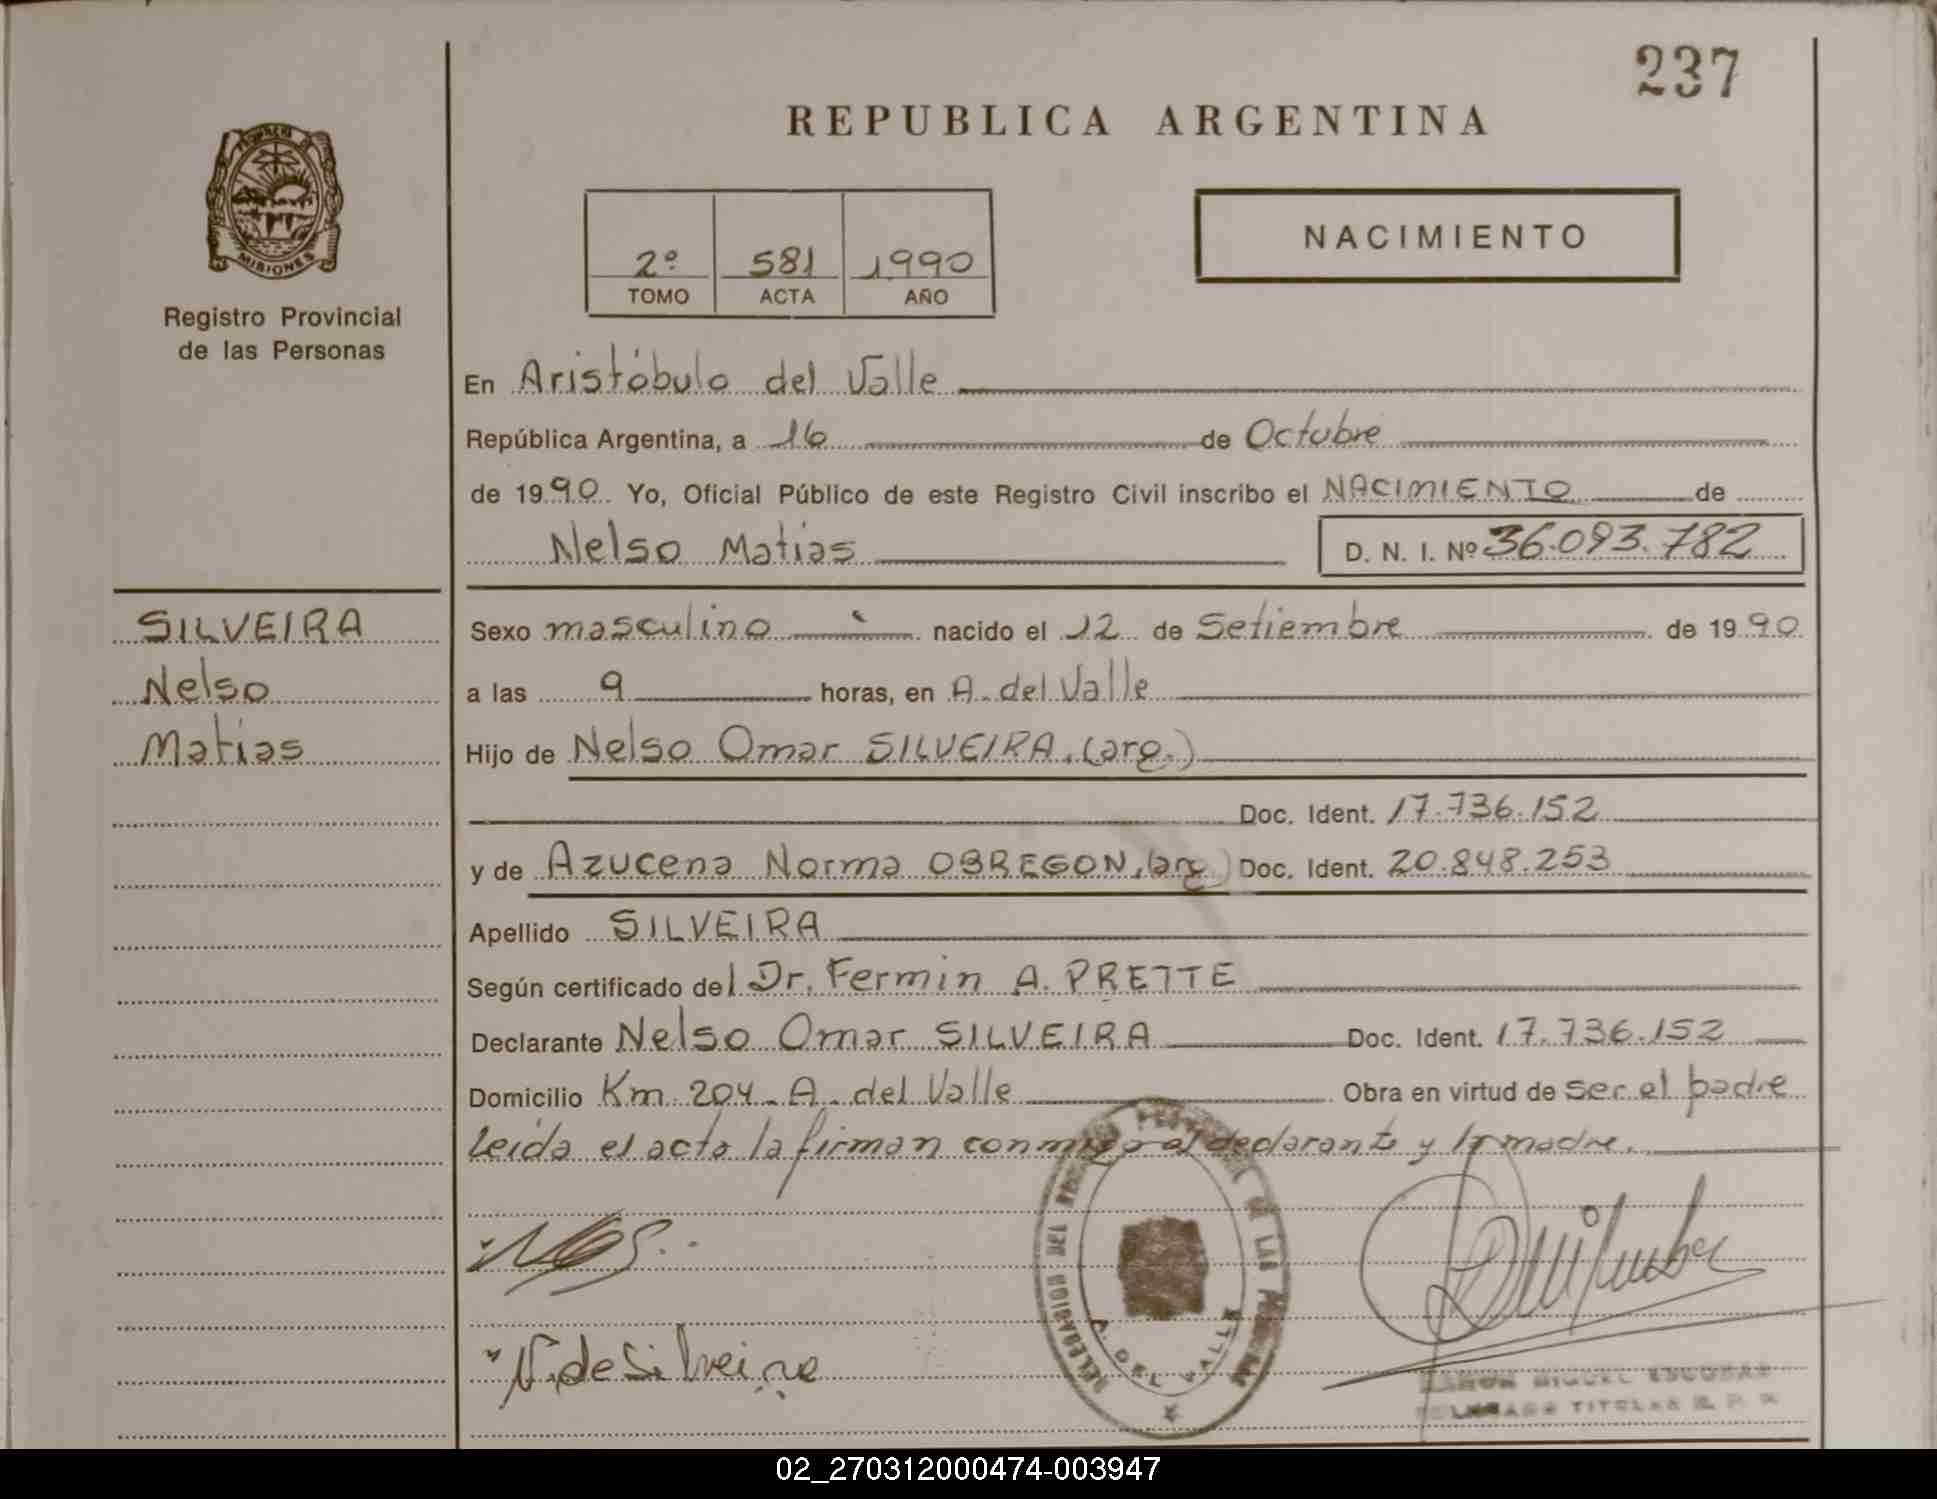 237
REPUBLICA ARGENTINA
MISIONES
Registro Provincial
de las Personas
2º 581 1990
TOMO ACTA AÑO
NACIMIENTO
En Aristóbulo del Valle
República Argentina, a 16 de Octubre
de 1990. Yo, Oficial Público de este Registro Civil inscribo el NACIMIENTO de
Nelso Matias
D. N. I. Nº 36.093.782
SILVEIRA
Nelso
Matias
Sexo masculino nacido el 12 de Setiembre de 1990
a las 9 horas, en A. del Valle
Hijo de Nelso Omar SILVEIRA, (arg.)
Doc. Ident. 17.736.152
y de Azucena Norma OBREGON, (arg) Doc. Ident. 20.848.253
Apellido SILVEIRA
Según certificado del Dr. Fermin A. PRETTE
Declarante Nelso Omar SILVEIRA Doc. Ident. 17.736.152
Domicilio Km. 204 - A. del Valle Obra en virtud de ser el padre
Leida el acta la firman conmigo el declarante y la madre.
N. de Silveira
DELEGACION DEL REGISTRO PROVINCIAL DE LAS PERSONAS
A. DEL VALLE
RAMON MIGUEL ESCOBAR
DELEGADO TITULAR R. P. P.
02_270312000474-003947